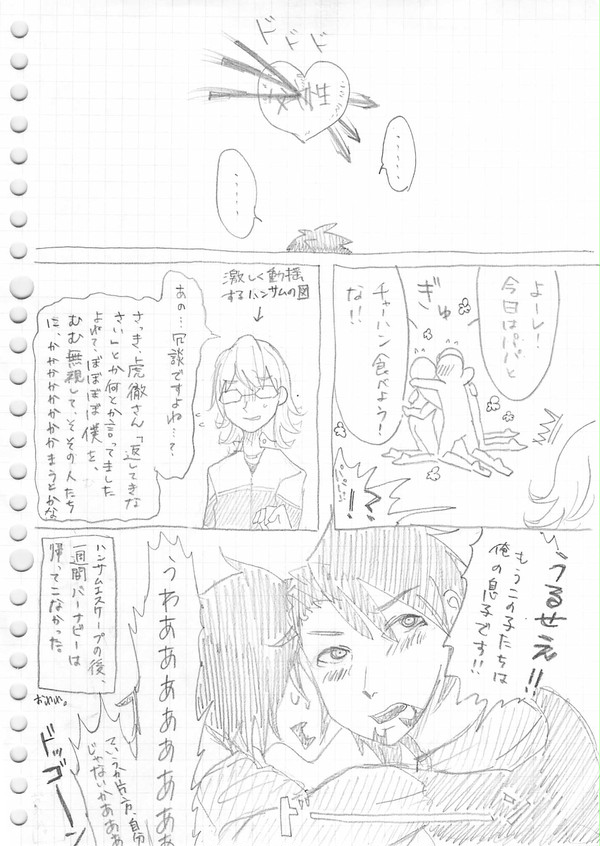 ドドド
女性
・・・・・
・・・・・
よーし!
今日はパパと
チャーハン食べよう!
な!!
ぎゅ
激しく動揺
するハンサムの図
あの…冗談ですよね…?
さっき虎徹さん「返してきな
さい」とか何とか言ってました
よねてぼぼぼぼ僕を、
むむ無視して、そそその人たち
に、かかかかかかかかまうとかな
うるせえ!!
もうこの子たちは
俺の息子です!!
うわあああああああああ
ていうか片方、自分
じゃないかあああ
ドッゴーン
ハンサムエスケープの後、
一週間バーナビーは
帰ってこなかった。
おわれ。